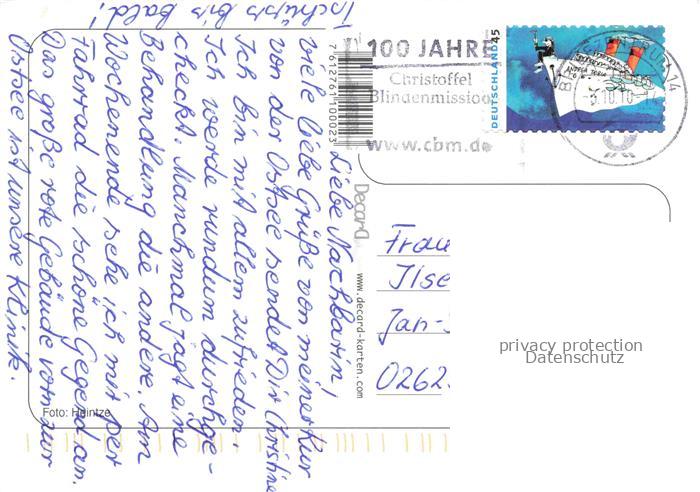 Liebe Nachbarin,
viele liebe Grüße von meiner Kur
von der Ostsee sendet Dir Christine
Ich bin mit allem zufrieden.
Ich werde rundum durchge-
checkt. Manchmal jagt eine
Behandlung die andere. Am
Wochenende sehe ich mir per
Fahrrad die schöne Gegend an.
Das große rote Gebäude vorn zur
Ostsee ist unsere Klinik.
Tschüss bis bald!
100 JAHRE
Christoffel
Blindenmission
www.cbm.de
DEUTSCHLAND 45
14
7612761100023
Decard
www.decard-karten.com
Frau
Ilse
Jan-
0262
privacy protection
Datenschutz
Foto: Heintze